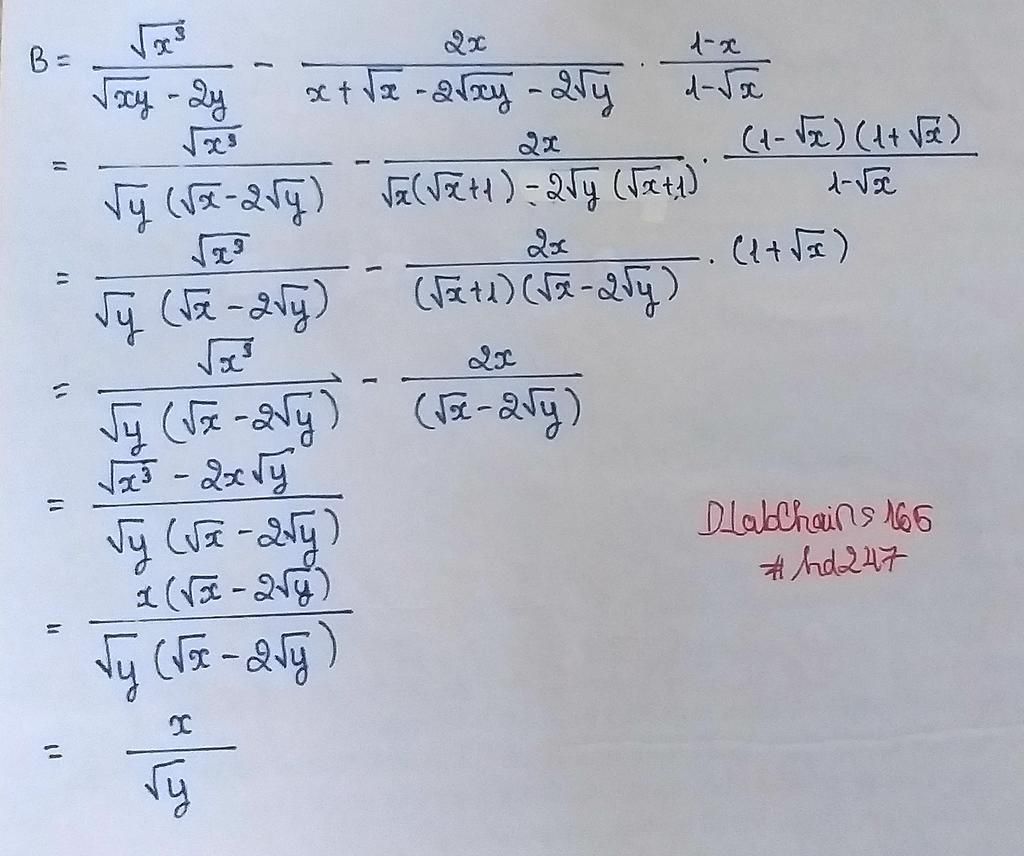 B = √x³ / (√xy - 2y) - 2x / (x + √x - 2√xy - 2√y) · (1-x) / (1-√x)
= √x³ / (√y (√x - 2√y)) - 2x / (√x(√x+1) - 2√y (√x+1)) · (1-√x)(1+√x) / (1-√x)
= √x³ / (√y (√x - 2√y)) - 2x / ((√x+1)(√x-2√y)) · (1+√x)
= √x³ / (√y (√x - 2√y)) - 2x / (√x - 2√y)
= (√x³ - 2x√y) / (√y (√x - 2√y))
= x(√x - 2√y) / (√y (√x - 2√y))
= x / √y
DLabChains166
#hd247